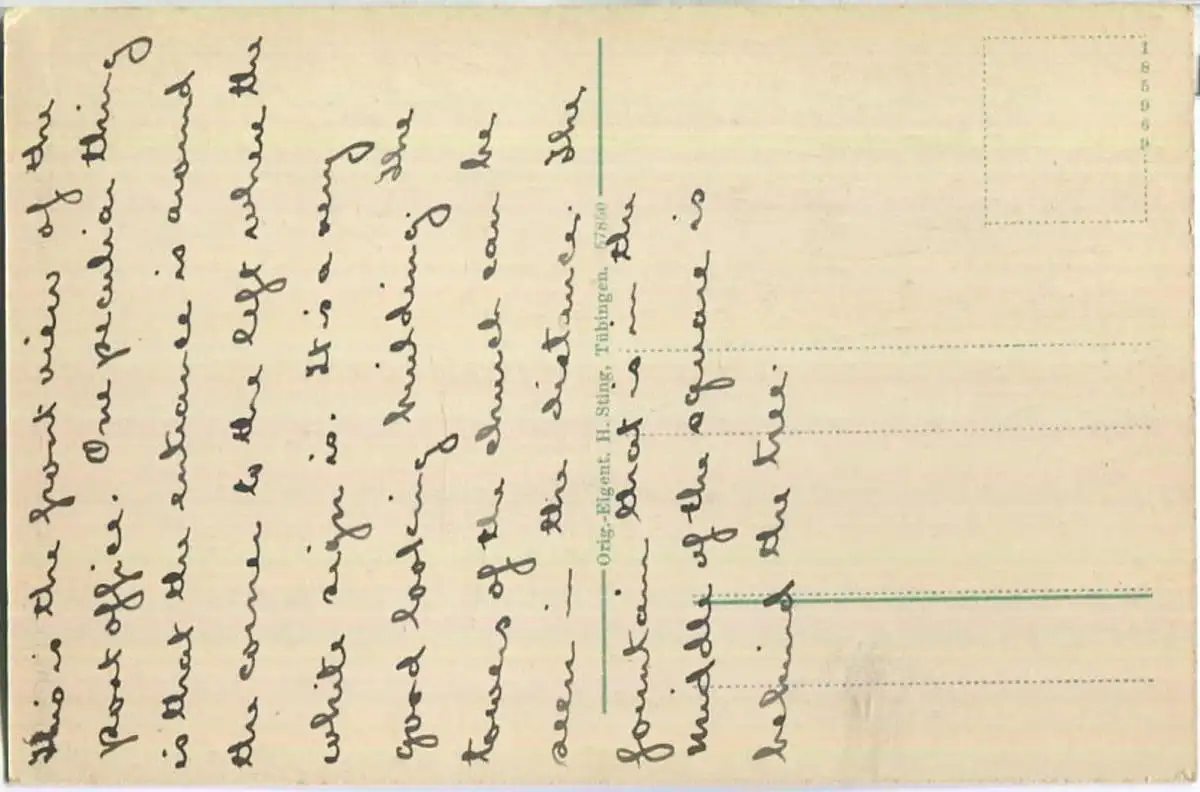 This is the front view of the
post office. One peculiar thing
is that the entrance is around
the corner to the left where the
white sign is. It is a very
good looking building. The
tower of the church can be
seen in the distance. The
fountain that is in the
middle of the square is
behind the tree.
Orig.-Eigent. H. Sting, Tübingen. 57850